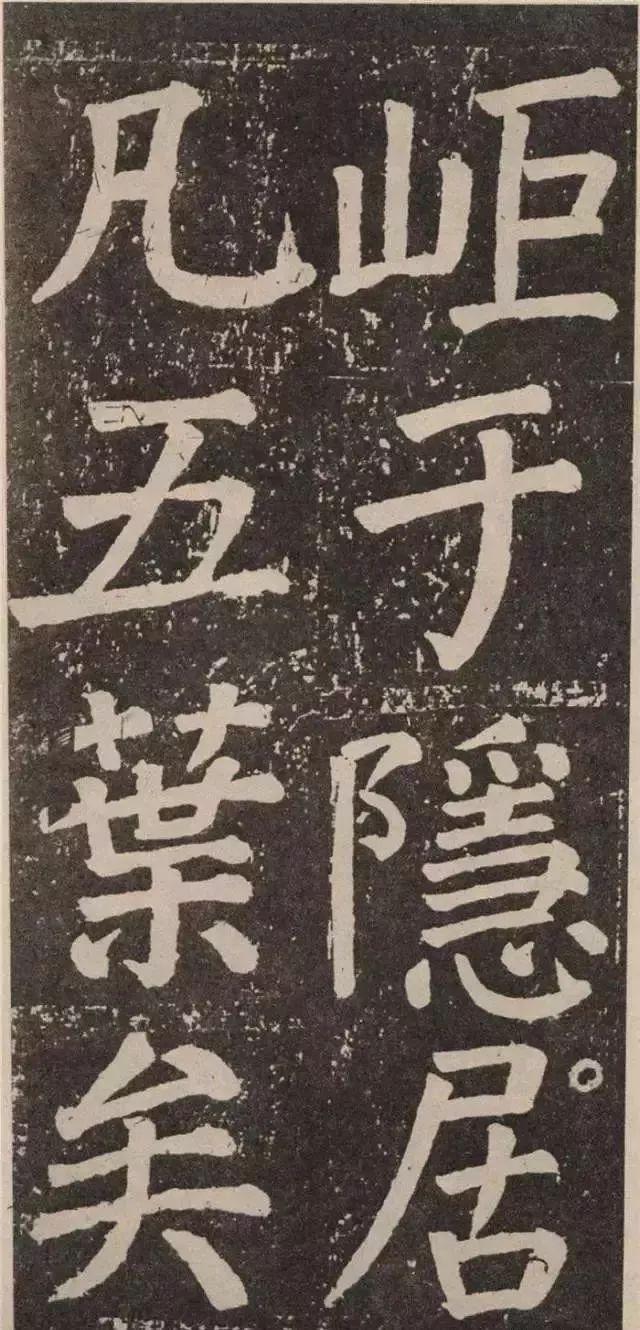 岠于隱居
凡五葉矣